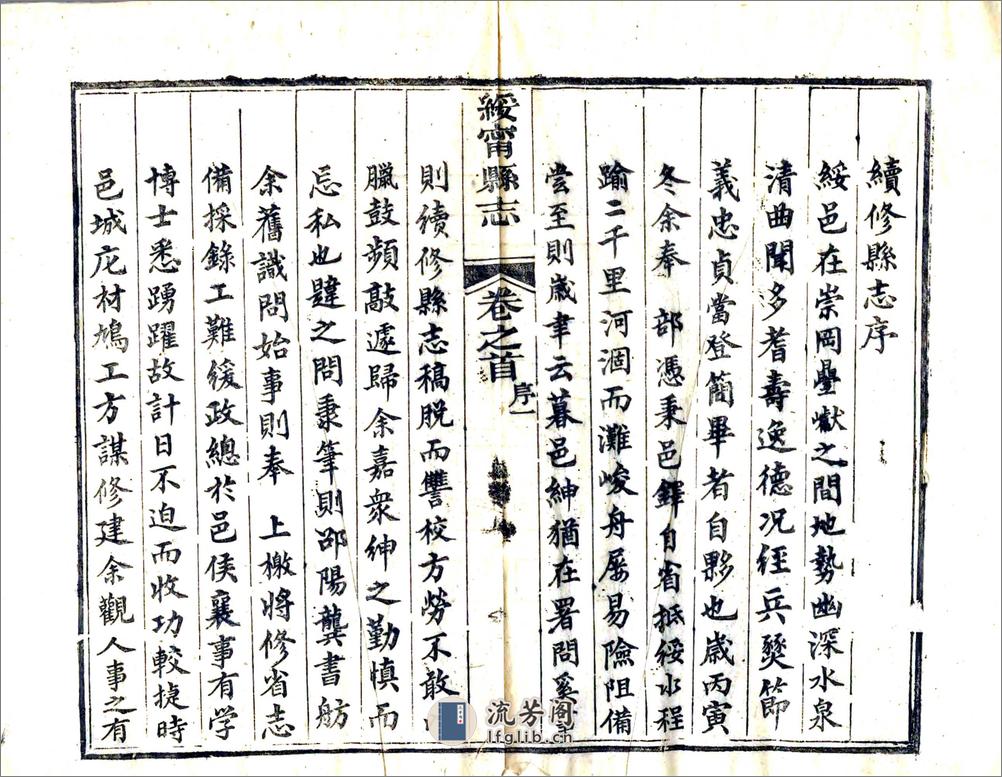 續修縣志序
綏邑在崇岡疊巘之間地勢幽深水泉
清曲聞多耆壽逸德况經兵燹節
義忠貞當登簡畢者自夥也歲丙寅
冬余奉 部憑秉邑鐸自省抵綏水程
踰二千里河涸而灘峻舟屡易險阻備
嘗至則歲聿云暮邑紳猶在署問奚
則續修縣志稿脱而讐校方勞不敢
臘鼓頻敲遽歸余嘉衆紳之勤慎而
忘私也韙之問秉筆則邵陽龔書舫
余舊識問始事則奉 上檄將修省志
備採錄工難緩政總於邑侯襄事有学
博士悉踴躍故計日不迫而收功較捷時
邑城庀材鳩工方謀修建余觀人事之有
綏甯縣志
卷之首
序一
流芳阁
lfglib.cn